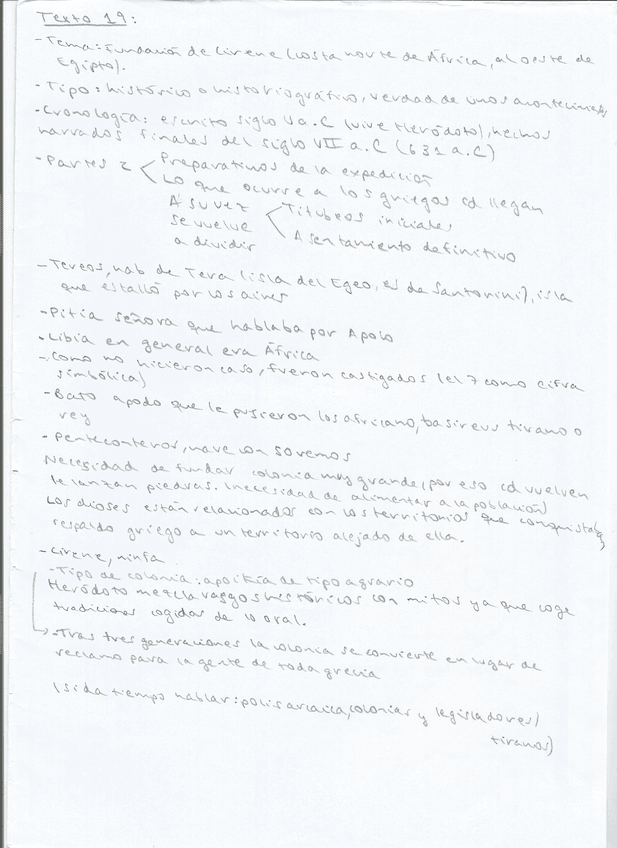 Texto 19:
- Tema: Fundación de Cirene (costa norte de África, al oeste de
Egipto).
- Tipo: histórico o historiográfico, verdad de unos acontecimientos
- Cronología: escrito siglo V a.C (vive Heródoto), hechos
narrados finales del siglo VII a.C (631 a.C)
- Partes 2 < Preparativos de la expedición
Lo que ocurre a los griegos cd llegan
A su vez
se vuelve
a dividir
< Titubeos iniciales
Asentamiento definitivo
- Tereos, hab de Tera (isla del Egeo, es de Santorini), isla
que estalló por los aires
- Pitia señora que hablaba por Apolo
- Libia en general era África
- Como no hicieron caso, fueron castigados (el 7 como cifra
simbólica)
- Bato apodo que le pusieron los africano, basireus tirano o
rey
- Penteconteros, nave con 50 remos
Necesidad de fundar colonia muy grande (por eso cd vuelven
le lanzan piedras. (necesidad de alimentar a la población)
Los dioses están relacionados con los territorios que conquistaban,
respaldo griego a un territorio alejado de ella.
- Cirene, ninfa
- Tipo de colonia: apoikía de tipo agrario
Heródoto mezcla rasgos históricos con mitos ya que coge
tradiciones cogidas de lo oral.
→ - Tras tres generaciones la colonia se convierte en lugar de
reclamo para la gente de toda grecia
(si da tiempo hablar: polis arcaica, colonias y legisladores)
tiranos)